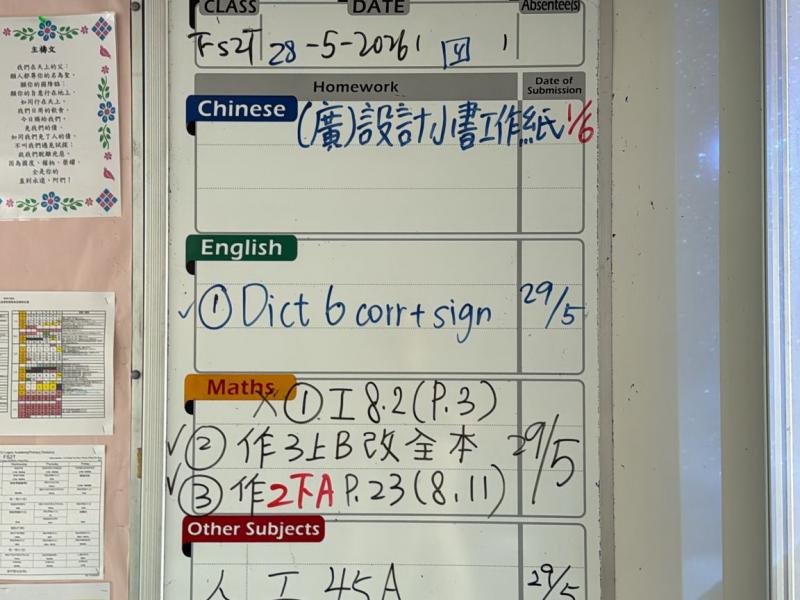 CLASS DATE Absentee(s)
FS2T 28-5-2026 ( 四 )
Homework Date of Submission
Chinese
(廣)設計小書工作紙 1/6
English
① Dict 6 corr+sign 29/5
Maths
X ① 工 8.2 (P.3)
✓ ② 作 3上B 改全本 29/5
✓ ③ 作 2下A P.23 (8.11)
Other Subjects
人 工 45A 29/5
主禱文
我們在天上的父：
願人都尊你的名為聖。
願你的國降臨；
願你的旨意行在地上，
如同行在天上。
我們日用的飲食，
今日賜給我們。
免我們的債，
如同我們免了人的債。
不叫我們遇見試探；
救我們脫離兇惡。
因為國度、權柄、榮耀，
全是你的
直到永遠，阿們！
FS2T